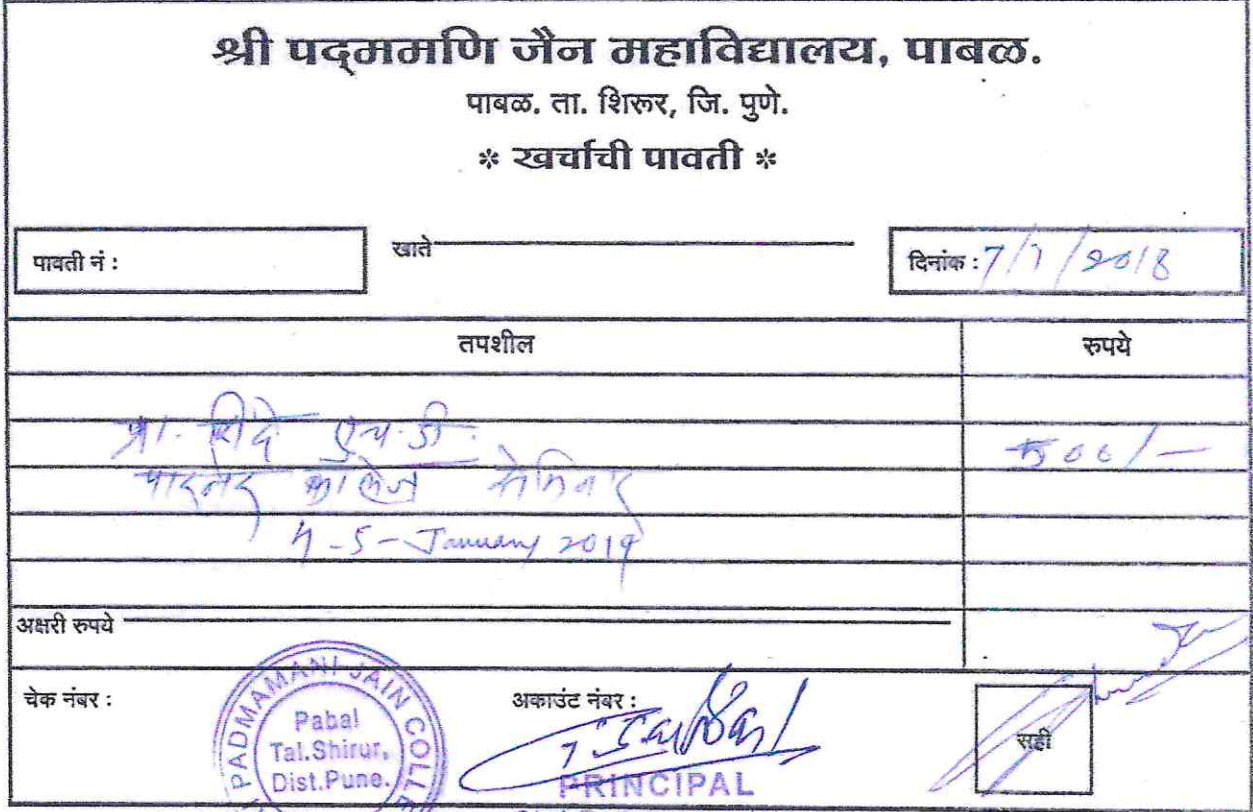 श्री पद्ममणि जैन महाविद्यालय, पाबळ.
पाबळ. ता. शिरूर, जि. पुणे.
* खर्चाची पावती *
पावती नं :
खाते
दिनांक : 7/1/2018
तपशील
रुपये
प्रा. शिंदे एच.डी.
500/-
पारनेर कॉलेज सेमिनार
4-5-January 2019
अक्षरी रुपये
चेक नंबर :
अकाउंट नंबर :
सही
PADMAMANI JAIN COLLE
Pabal
Tal.Shirur,
Dist.Pune.
PRINCIPAL